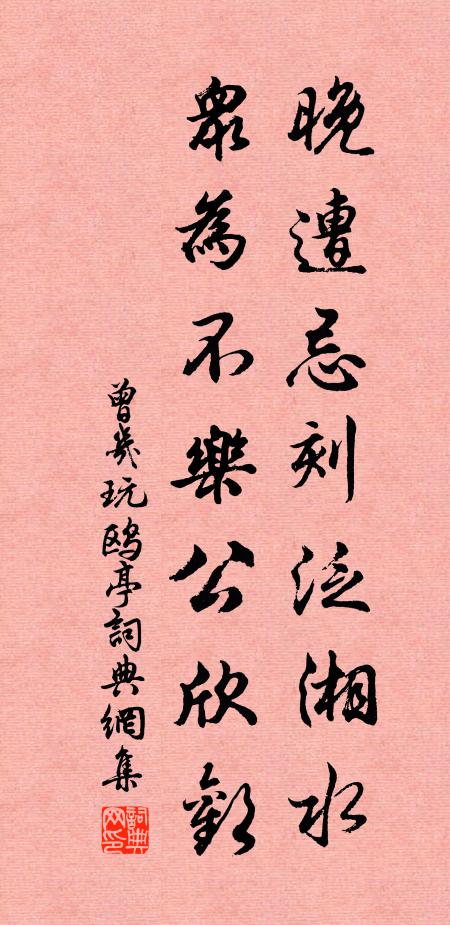 晚遭忌刻泛湘水
衆為不樂公欣歡
曾幾玩鷗亭詞典網集
詞典網印